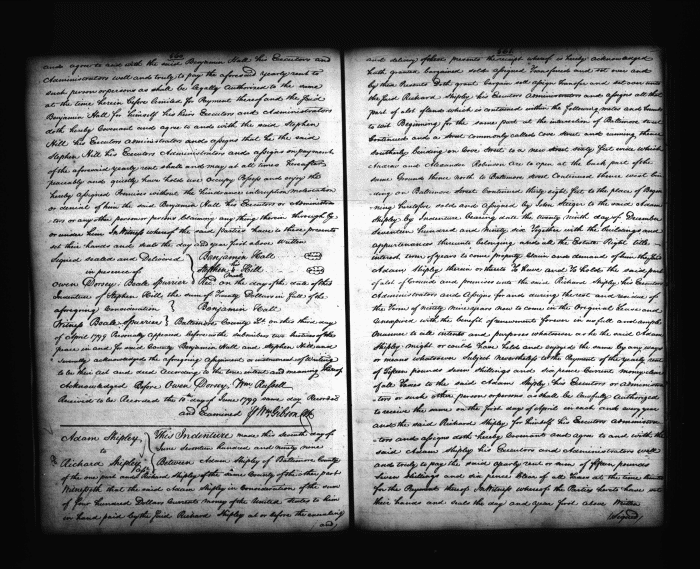 and agree to and with the said Benjamin Hall his Executors and
Administrators well and truly to pay the aforesaid yearly rent to
such person or persons as shall be legally authorized to the same
at the time herein before limited for Payment thereof and the said
Benjamin Hall for himself his heirs Executors and Administrators
doth hereby Covenant and agree to and with the said Stephen
Hill his Executors administrators and assigns that he the said
Stephen Hill his Executors Administrators and assigns on payment
of the aforesaid yearly rent shall and may at all times hereafter
peaceably and quietly have hold use Occupy Possess and enjoy the
hereby assigned Premises without the hindrance interruption molestation
or denial of him the said Benjamin Hall his Executors or Administra
tors or any other person or persons claiming any thing therein through by
or under him In Witness whereof the said Parties have to these presents
set their hands and seals the day and year first above written
Signed sealed and Delivered } Benjamin Hall
in presence of } Stephen Hill
Owen Dorsey. Beale Spurrier } Recd on the day of the date of this
Indenture of Stephen Hill the sum of Twenty Dollars in full of the
aforegoing Consideration } Benjamin Hall
Witness Beale Spurrier } Baltimore County Sct on this third day
of April 1799 Personally appeared before the subscribers two Justices of the
peace in and for said County Benjamin Hall and Stephen Hill and
severally acknowledged the aforegoing assignment or instrument of Writing
to be their act and deed According to the true intent and meaning thereof
Acknowledged Before Owen Dorsey Wm Russell
Received to be Recorded the 10th day of June 1799 same day Recorded
and Examined Wm Gibson Clk
Adam Shipley
to
Richard Shipley
This Indenture made this seventh day of
June seventeen hundred and ninety nine
Between Adam Shipley of Baltimore County
of the one part and Richard Shipley of the same County of the other part
Witnesseth that the said Adam Shipley in Consideration of the sum
of four hundred Dollars Current money of the United States to him
in hand paid by the said Richard Shipley at or before the ensealing
and
and delivery of these presents the receipt whereof is hereby acknowledged
hath granted bargained sold assigned Transferred and set over and
by these Presents Doth grant bargain sell assign transfer and set over unto
the said Richard Shipley his Executors Administrators and assigns all that
part of a lot of land which is contained within the following metes and bounds
to wit Beginning for the same part at the intersection of Baltimore street
Continued and a street commonly called Cove street and running thence
Southerly binding on Cove street to a new street sixty feet wide which
Andrew and Alexander Robinson are to open at the back part of the
same Ground thence north to Baltimore street Continued thence east bin
ding on Baltimore street Continued thirty eight feet to the place of Begin
ning heretofore sold and assigned by John Steiger to the said Adam
Shipley by Indenture bearing date the twenty ninth day of December
seventeen hundred and ninety six Together with the buildings and
appurtenances thereunto belonging and all the Estate Right title
interest term of years to come property claim and demand of him the said
Adam Shipley therein or thereto To have and To hold the said part
of a lot of Ground and premises unto the said Richard Shipley his Executors
Administrators and assigns for and during the rest and residue of
the Term of ninety nine years now to come in the Original Lease and
unexpired with the benefit of renewment forever in as full and ample
Manner to all intents and purposes whatsoever as he the said Adam
Shipley might or could have held and enjoyed the same by any ways
or means whatsoever Subject nevertheless to the Payment of the yearly rent
of fifteen pounds seven shillings and six pence Current money clear
of all Taxes to the said Adam Shipley his Executors or administra
tors or such other person or persons as shall be lawfully authorized
to receive the same on the first day of april in each and every year
and the said Richard Shipley for himself his Executors administra
tors and assigns doth hereby Covenant and agree to and with the
said Adam Shipley his Executors and Administrators well
and truly to pay the said yearly rent or sum of fifteen pounds
seven shillings and six pence clear of all Taxes at the time limited
for the Payment thereof In Witness whereof the Parties hereto have set
their hands and seals the day and year first above Written
Signed